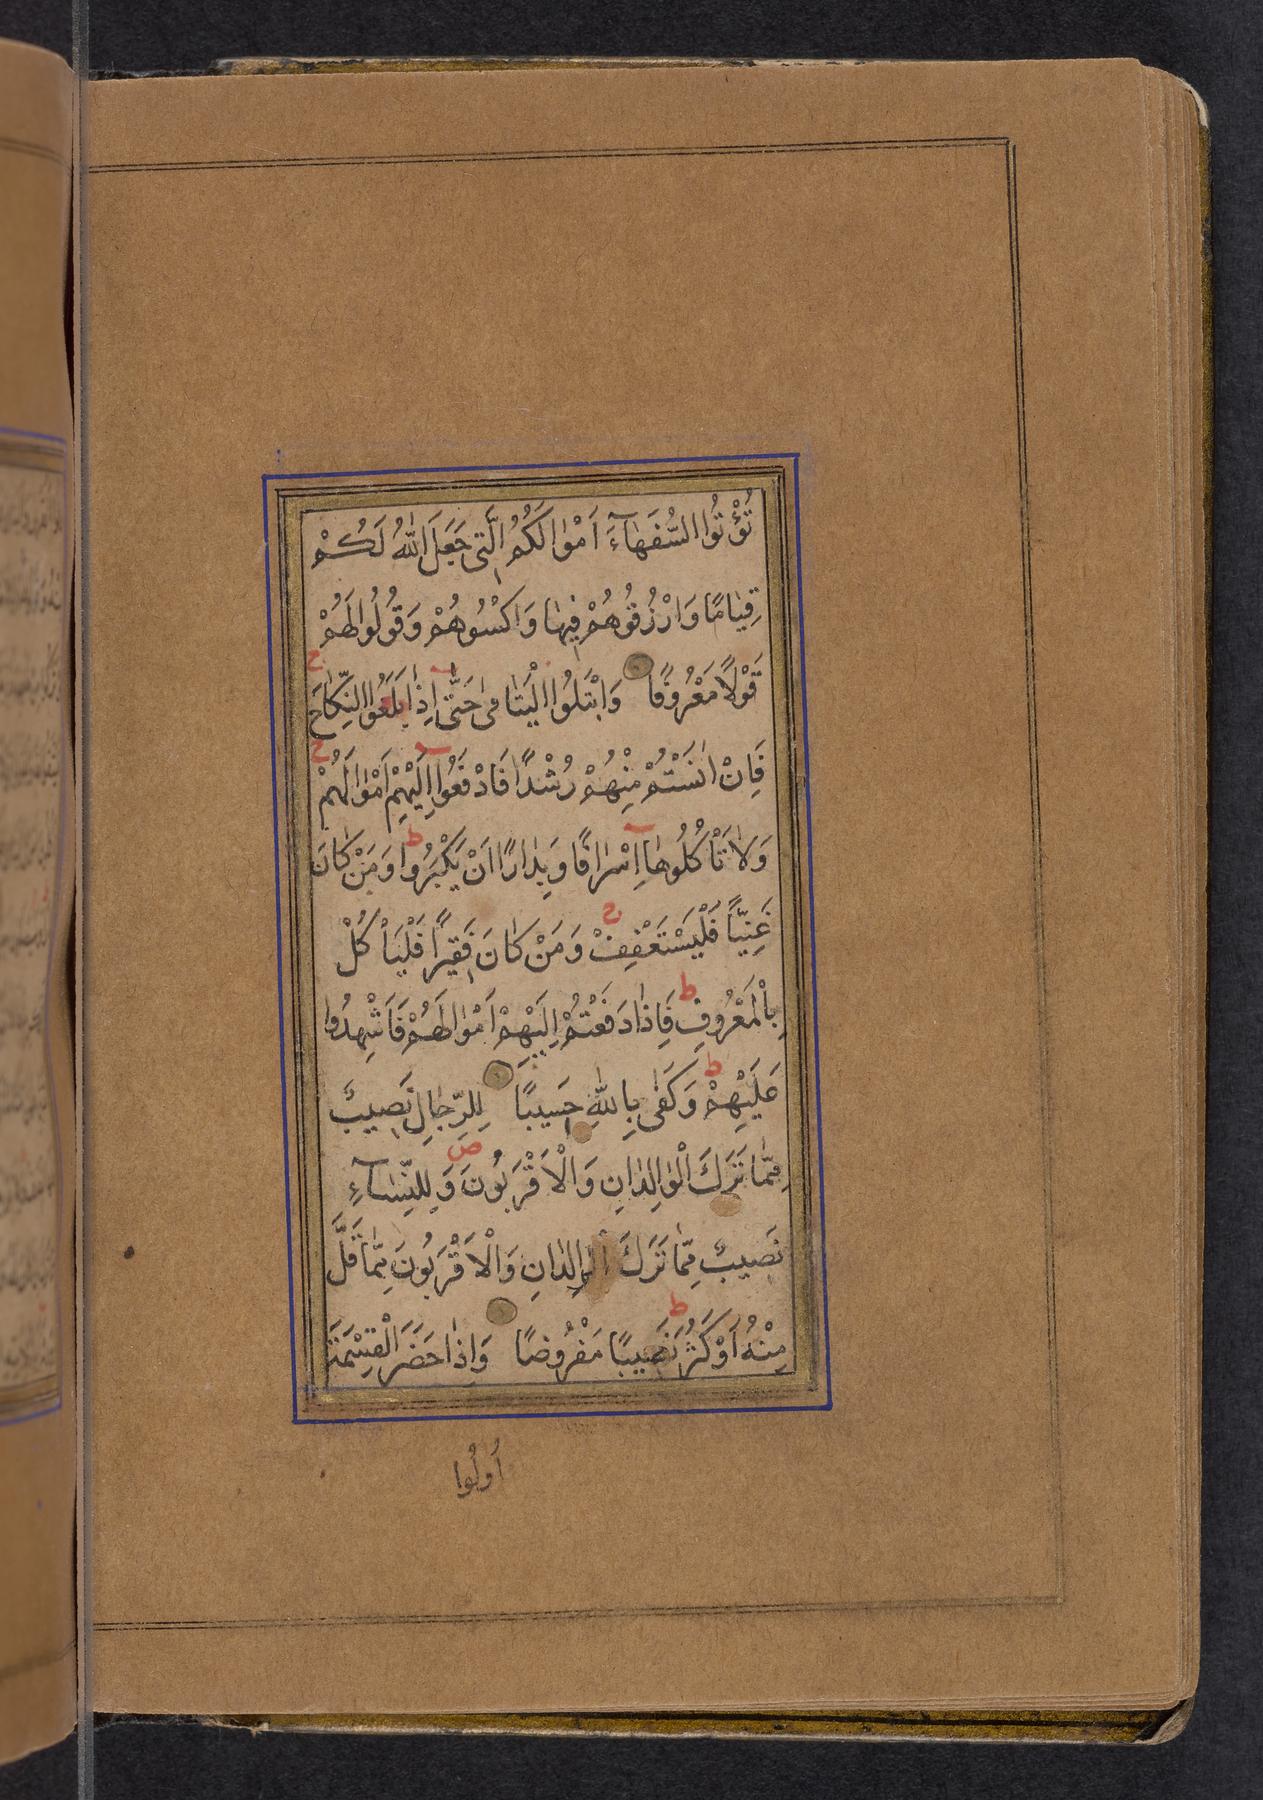 تُؤْتُوا السُّفَهَآءَ اَمْوٰالَكُمُ الَّتِى جَعَلَ اللّٰهُ لَكُمْ
قِيٰامًا وَارْزُقُوهُمْ فِيهٰا وَاكْسُوهُمْ وَقُولُوا لَهُمْ
قَوْلًا مَعْرُوفًا وَابْتَلُوا الْيَتٰامىٰ حَتّٰى اِذٰا بَلَغُوا النِّكٰاحَ
فَاِنْ اٰنَسْتُمْ مِنْهُمْ رُشْدًا فَادْفَعُوا اِلَيْهِمْ اَمْوٰالَهُمْ
وَلٰا تَأْكُلُوهٰا اِسْرٰافًا وَبِدٰارًا اَنْ يَكْبَرُوا وَمَنْ كٰانَ
غَنِيّاً فَلْيَسْتَعْفِفْ وَمَنْ كٰانَ فَقِيرًا فَلْيَأْكُلْ
بِالْمَعْرُوفِ فَاِذٰا دَفَعْتُمْ اِلَيْهِمْ اَمْوٰالَهُمْ فَاَشْهِدُوا
عَلَيْهِمْ وَكَفىٰ بِاللّٰهِ حَسِيبًا لِلرِّجٰالِ نَصِيبٌ
مِمّٰا تَرَكَ الْوٰالِدٰانِ وَالْاَقْرَبُونَ وَلِلنِّسٰآءِ
نَصِيبٌ مِمّٰا تَرَكَ الْوٰالِدٰانِ وَالْاَقْرَبُونَ مِمّٰا قَلَّ
مِنْهُ اَوْ كَثُرَ نَصِيبًا مَفْرُوضًا وَاِذٰا حَضَرَ الْقِسْمَةَ
اُولُوا